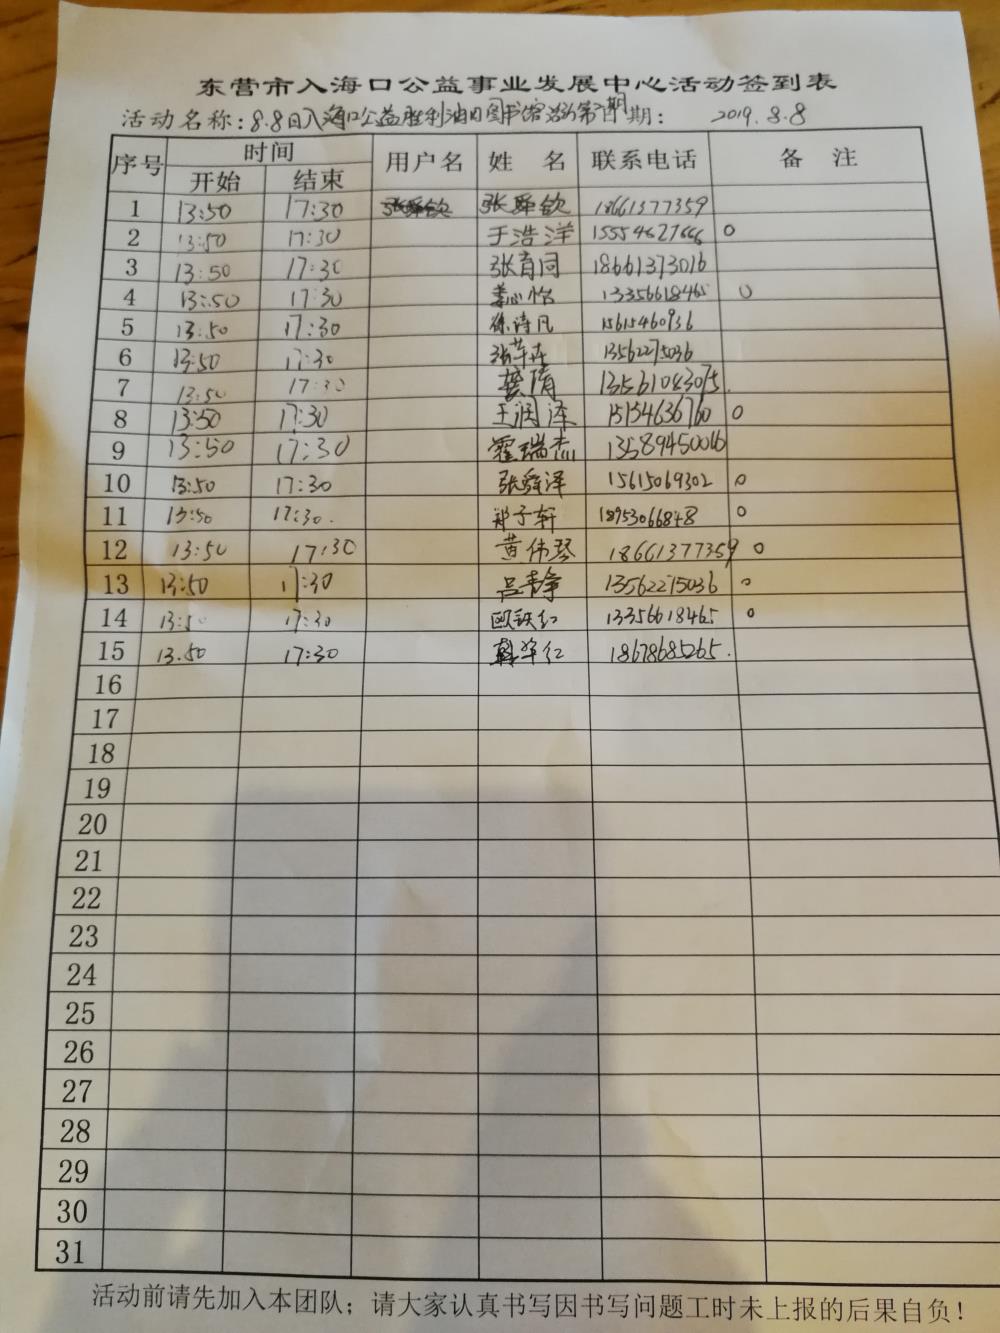 东营市入海口公益事业发展中心活动签到表
活动名称:8.8日入海口公益胜利油田图书馆 期 日期: 2019.8.8
序号 时间 用户名 姓 名 联系电话 备 注
开始 结束
1 13:50 17:30 张舜钦 18661377359
2 13:50 17:30 于浩洋 15554627666 0
3 13:50 17:30 张育同 18661373016
4 13:50 17:30 姜心怡 13356618465 0
5 13:50 17:30 徐诗凡 15615460936
6 13:50 17:30 13562275036
7 13:50 17:30 龚倩 13561083075.
8 13:50 17:30 王润泽 15154636760 0
9 13:50 17:30 霍瑞杰 13589450016
10 13:50 17:30 张舜泽 15615069302 0
11 13:50 17:30. 郑子轩 18953066848 0
12 13:50 17:30 黄伟琴 18661377359 0
13 13:50 17:30 吕春争 13562275036 0
14 13:50 17:30 欧铁红 13356618465 0
15 13.50 17:30 韩华红 18678685265.
16
17
18
19
20
21
22
23
24
25
26
27
28
29
30
31
活动前请先加入本团队；请大家认真书写因书写问题工时未上报的后果自负！